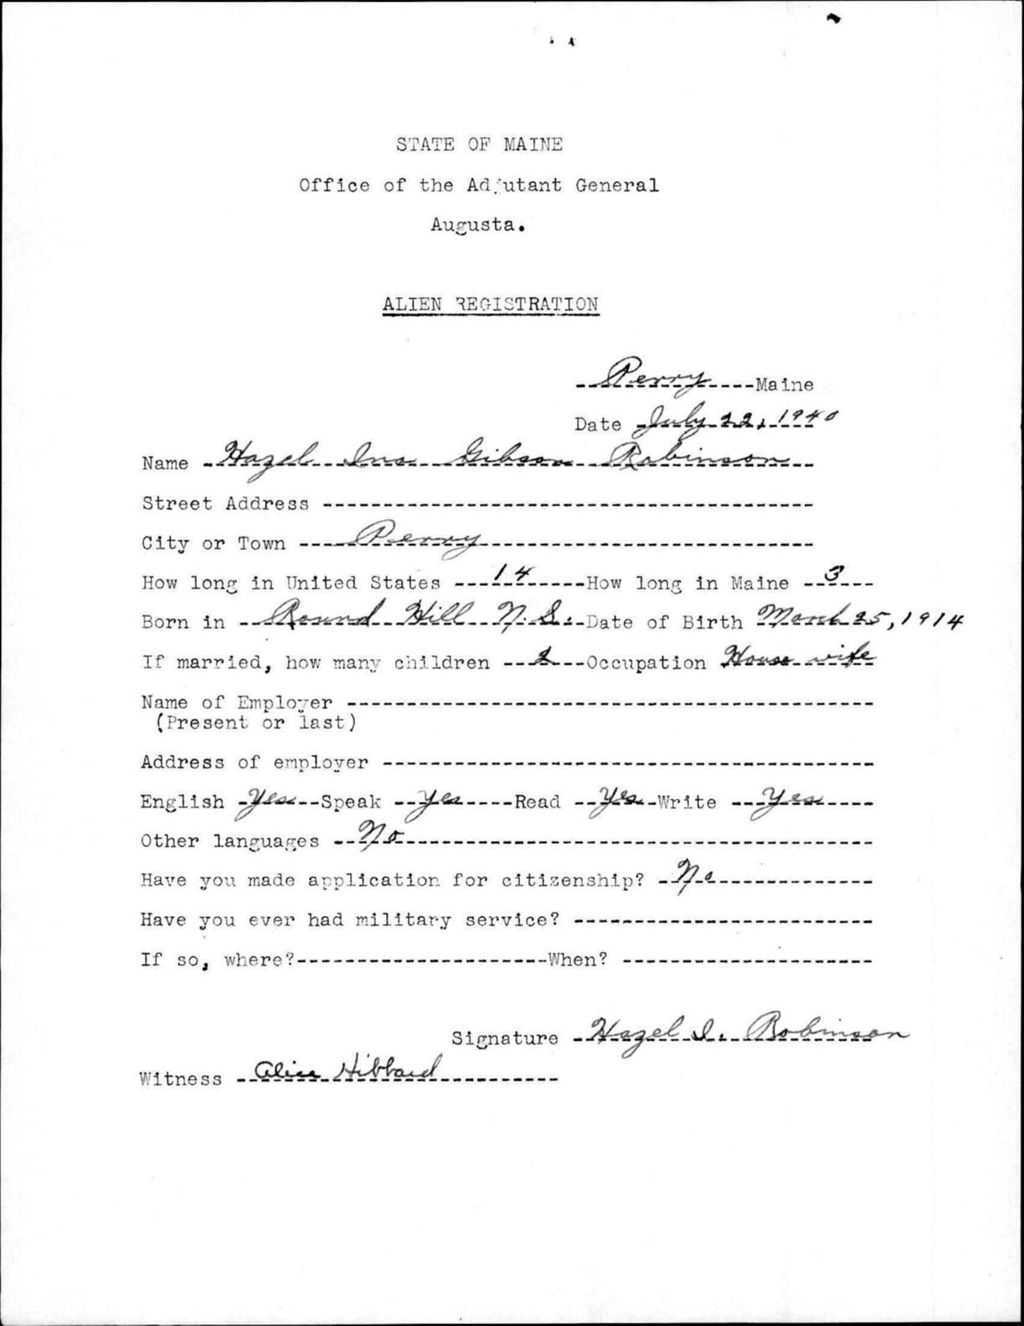 STATE OF MAINE
Office of the Adjutant General
Augusta.
ALIEN REGISTRATION
Perry Maine
Date July 22, 1940
Name Hazel Ina Gibson Robinson
Street Address
City or Town Perry
How long in United States 14 How long in Maine 3
Born in Round Hill N.S. Date of Birth March 25, 1914
If married, how many children Occupation House wife
Name of Employer
(Present or last)
Address of employer
English Yes Speak Yes Read Yes Write Yes
Other languages No
Have you made application for citizenship? No
Have you ever had military service?
If so, where? When?
Signature Hazel I. Robinson
Witness Alice Hibbard